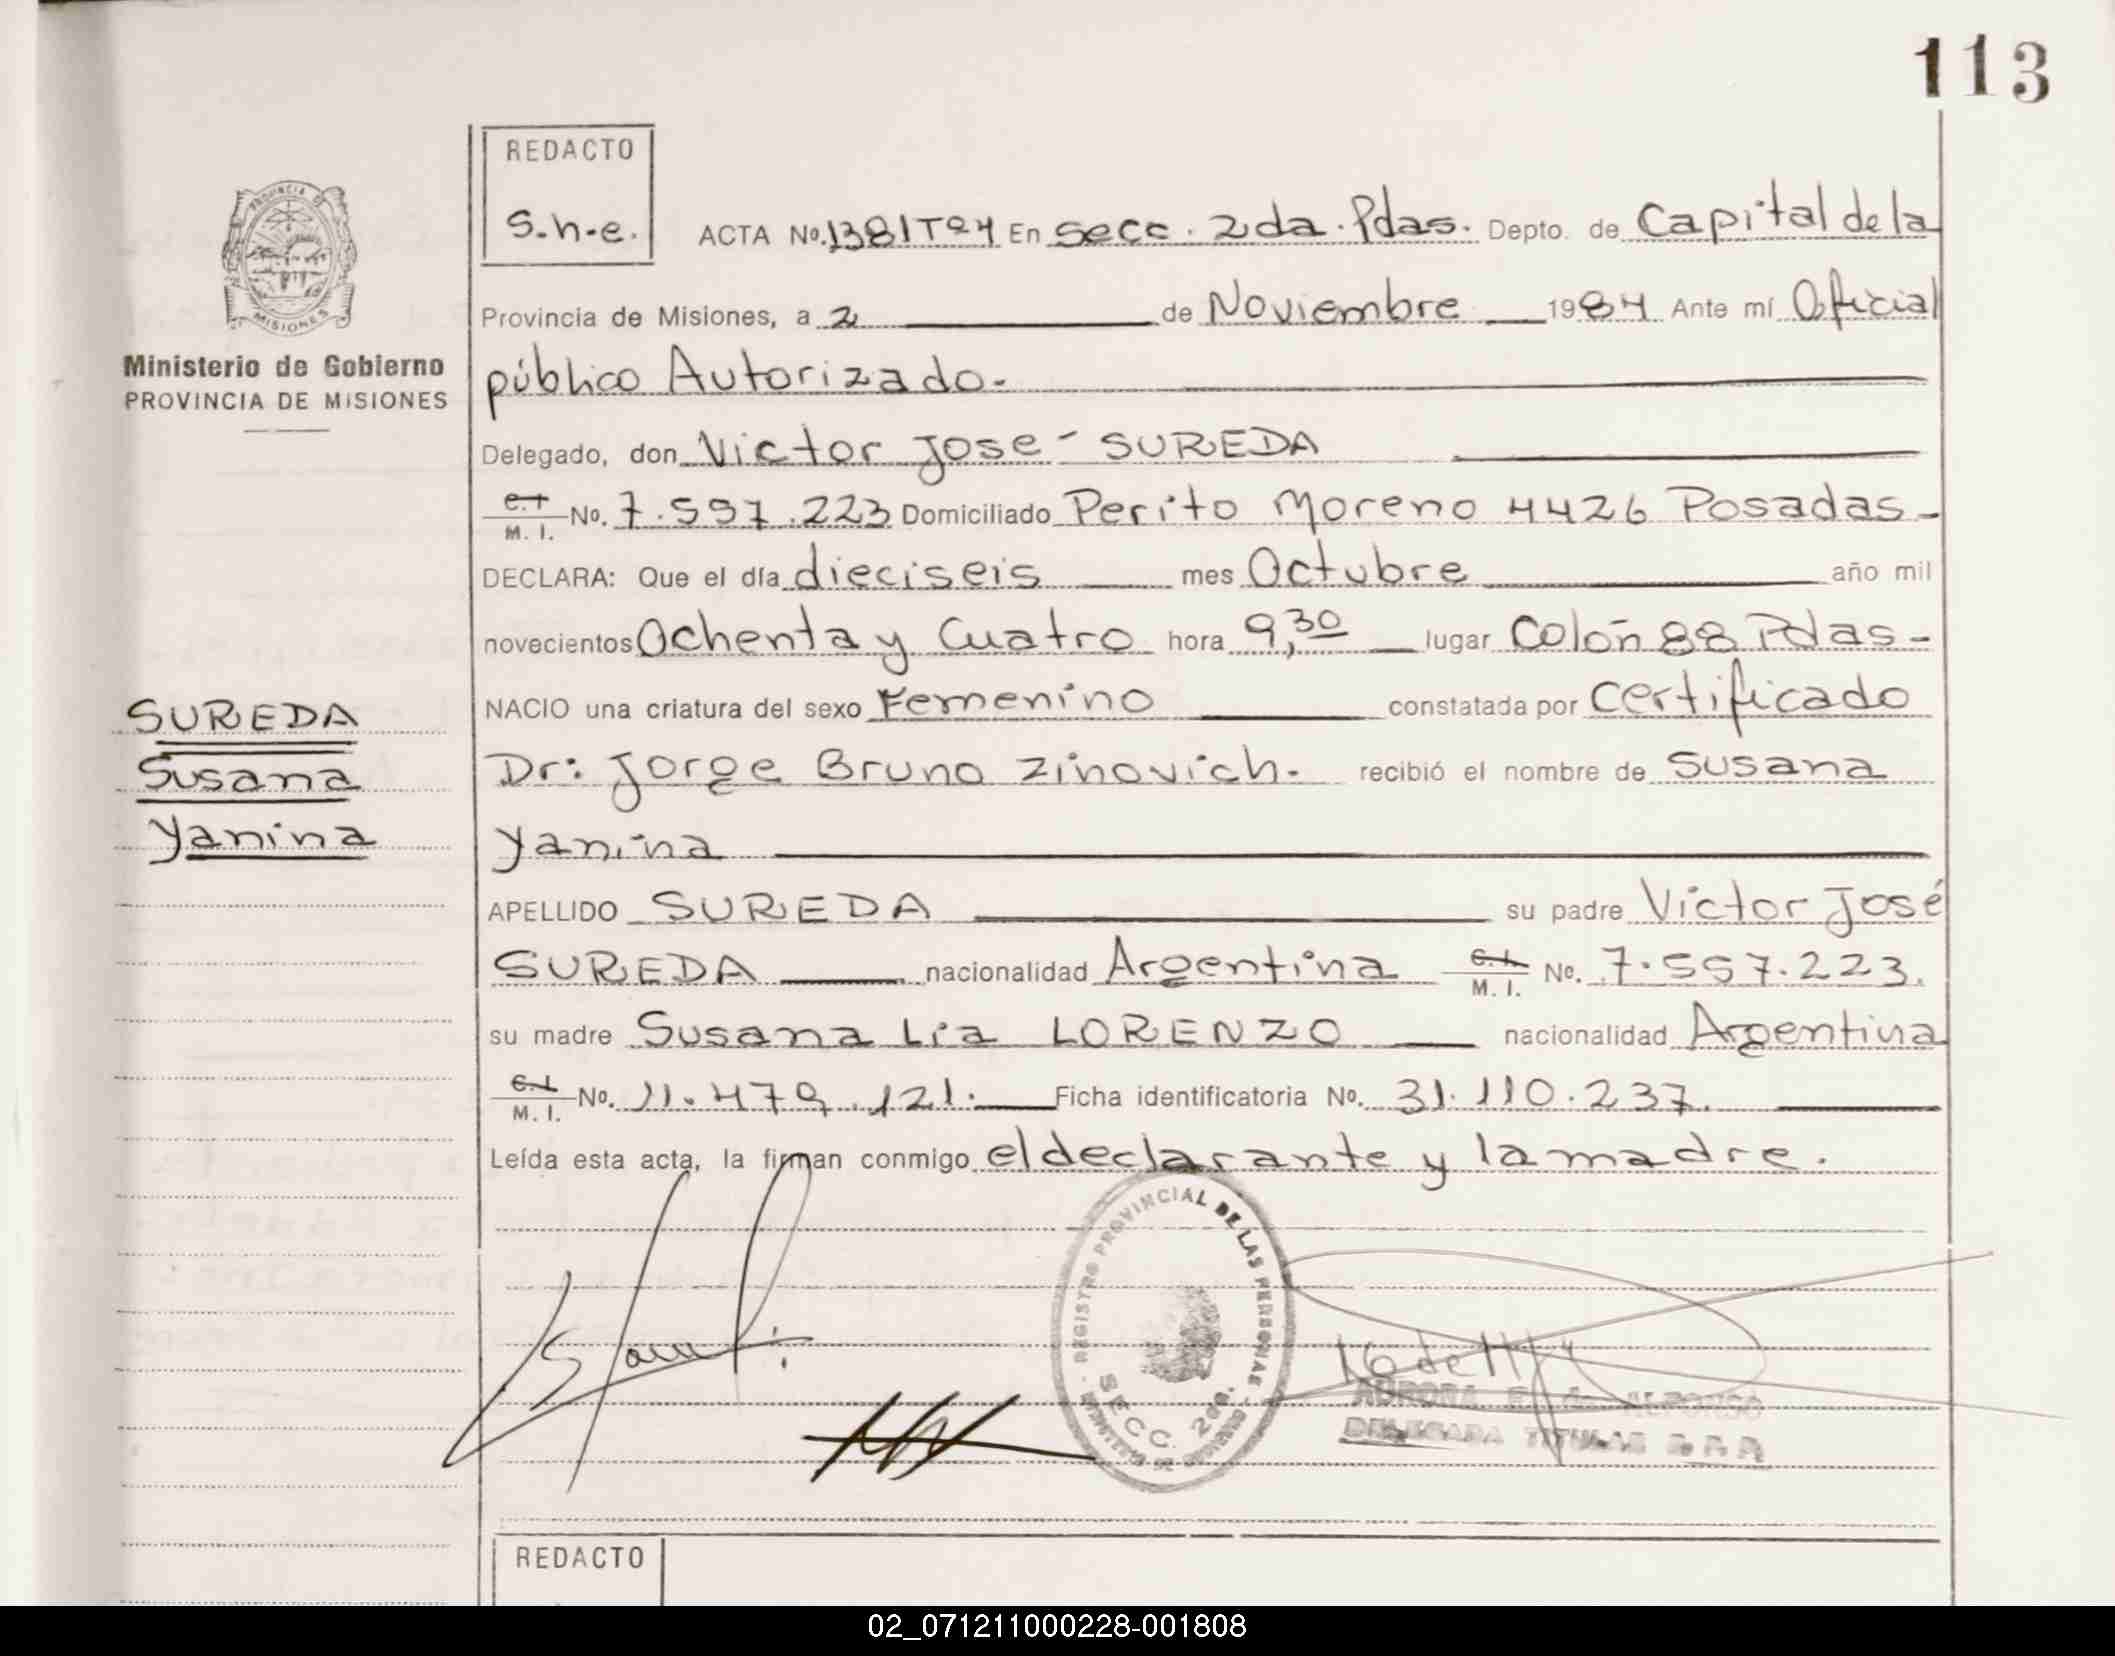 113
REDACTO
S.h.e.
ACTA No. 1381 T°4 En Secc. 2da. Pdas. Depto. de Capital de la
PROVINCIA DE
MISIONES
Provincia de Misiones, a 2 de Noviembre 1984 Ante mí Oficial
Ministerio de Gobierno
PROVINCIA DE MISIONES
público Autorizado.
Delegado, don Victor Jose SUREDA
C.I. M. I. No. 7.557.223 Domiciliado Perito Moreno 4426 Posadas
DECLARA: Que el día dieciseis mes Octubre año mil
novecientos Ochenta y Cuatro hora 9,30 lugar Colón 88 Pdas
NACIO una criatura del sexo Femenino constatada por Certificado
SUREDA
Susana
Yanina
Dr: Jorge Bruno Zinovich. recibió el nombre de Susana
Yanina
APELLIDO SUREDA su padre Victor José
SUREDA nacionalidad Argentina C.I. M. I. No. 7.557.223.
su madre Susana Lia LORENZO nacionalidad Argentina
C.I. M. I. No. 11.479.121. Ficha identificatoria No. 31.110.237.
Leída esta acta, la firman conmigo el declarante y la madre.
REGISTRO PROVINCIAL DE LAS PERSONAS
SECC. 2da.
AURORA E. de ALFONSO
DELEGADA TITULAR R.P.P.
REDACTO
02_071211000228-001808